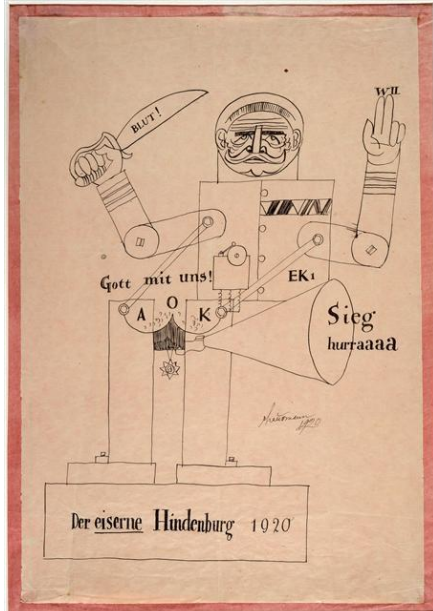 W II.
BLUT!
Gott mit uns!
EK1
A O K
Sieg
hurraaaa
Hausmann
1920
Der eiserne Hindenburg 1920